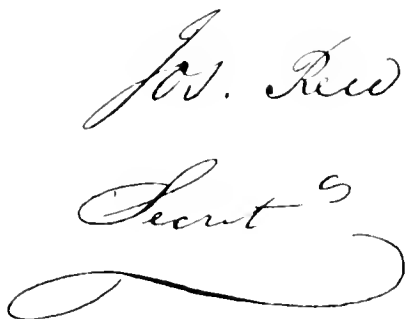 Jos. Reed
Secret^y